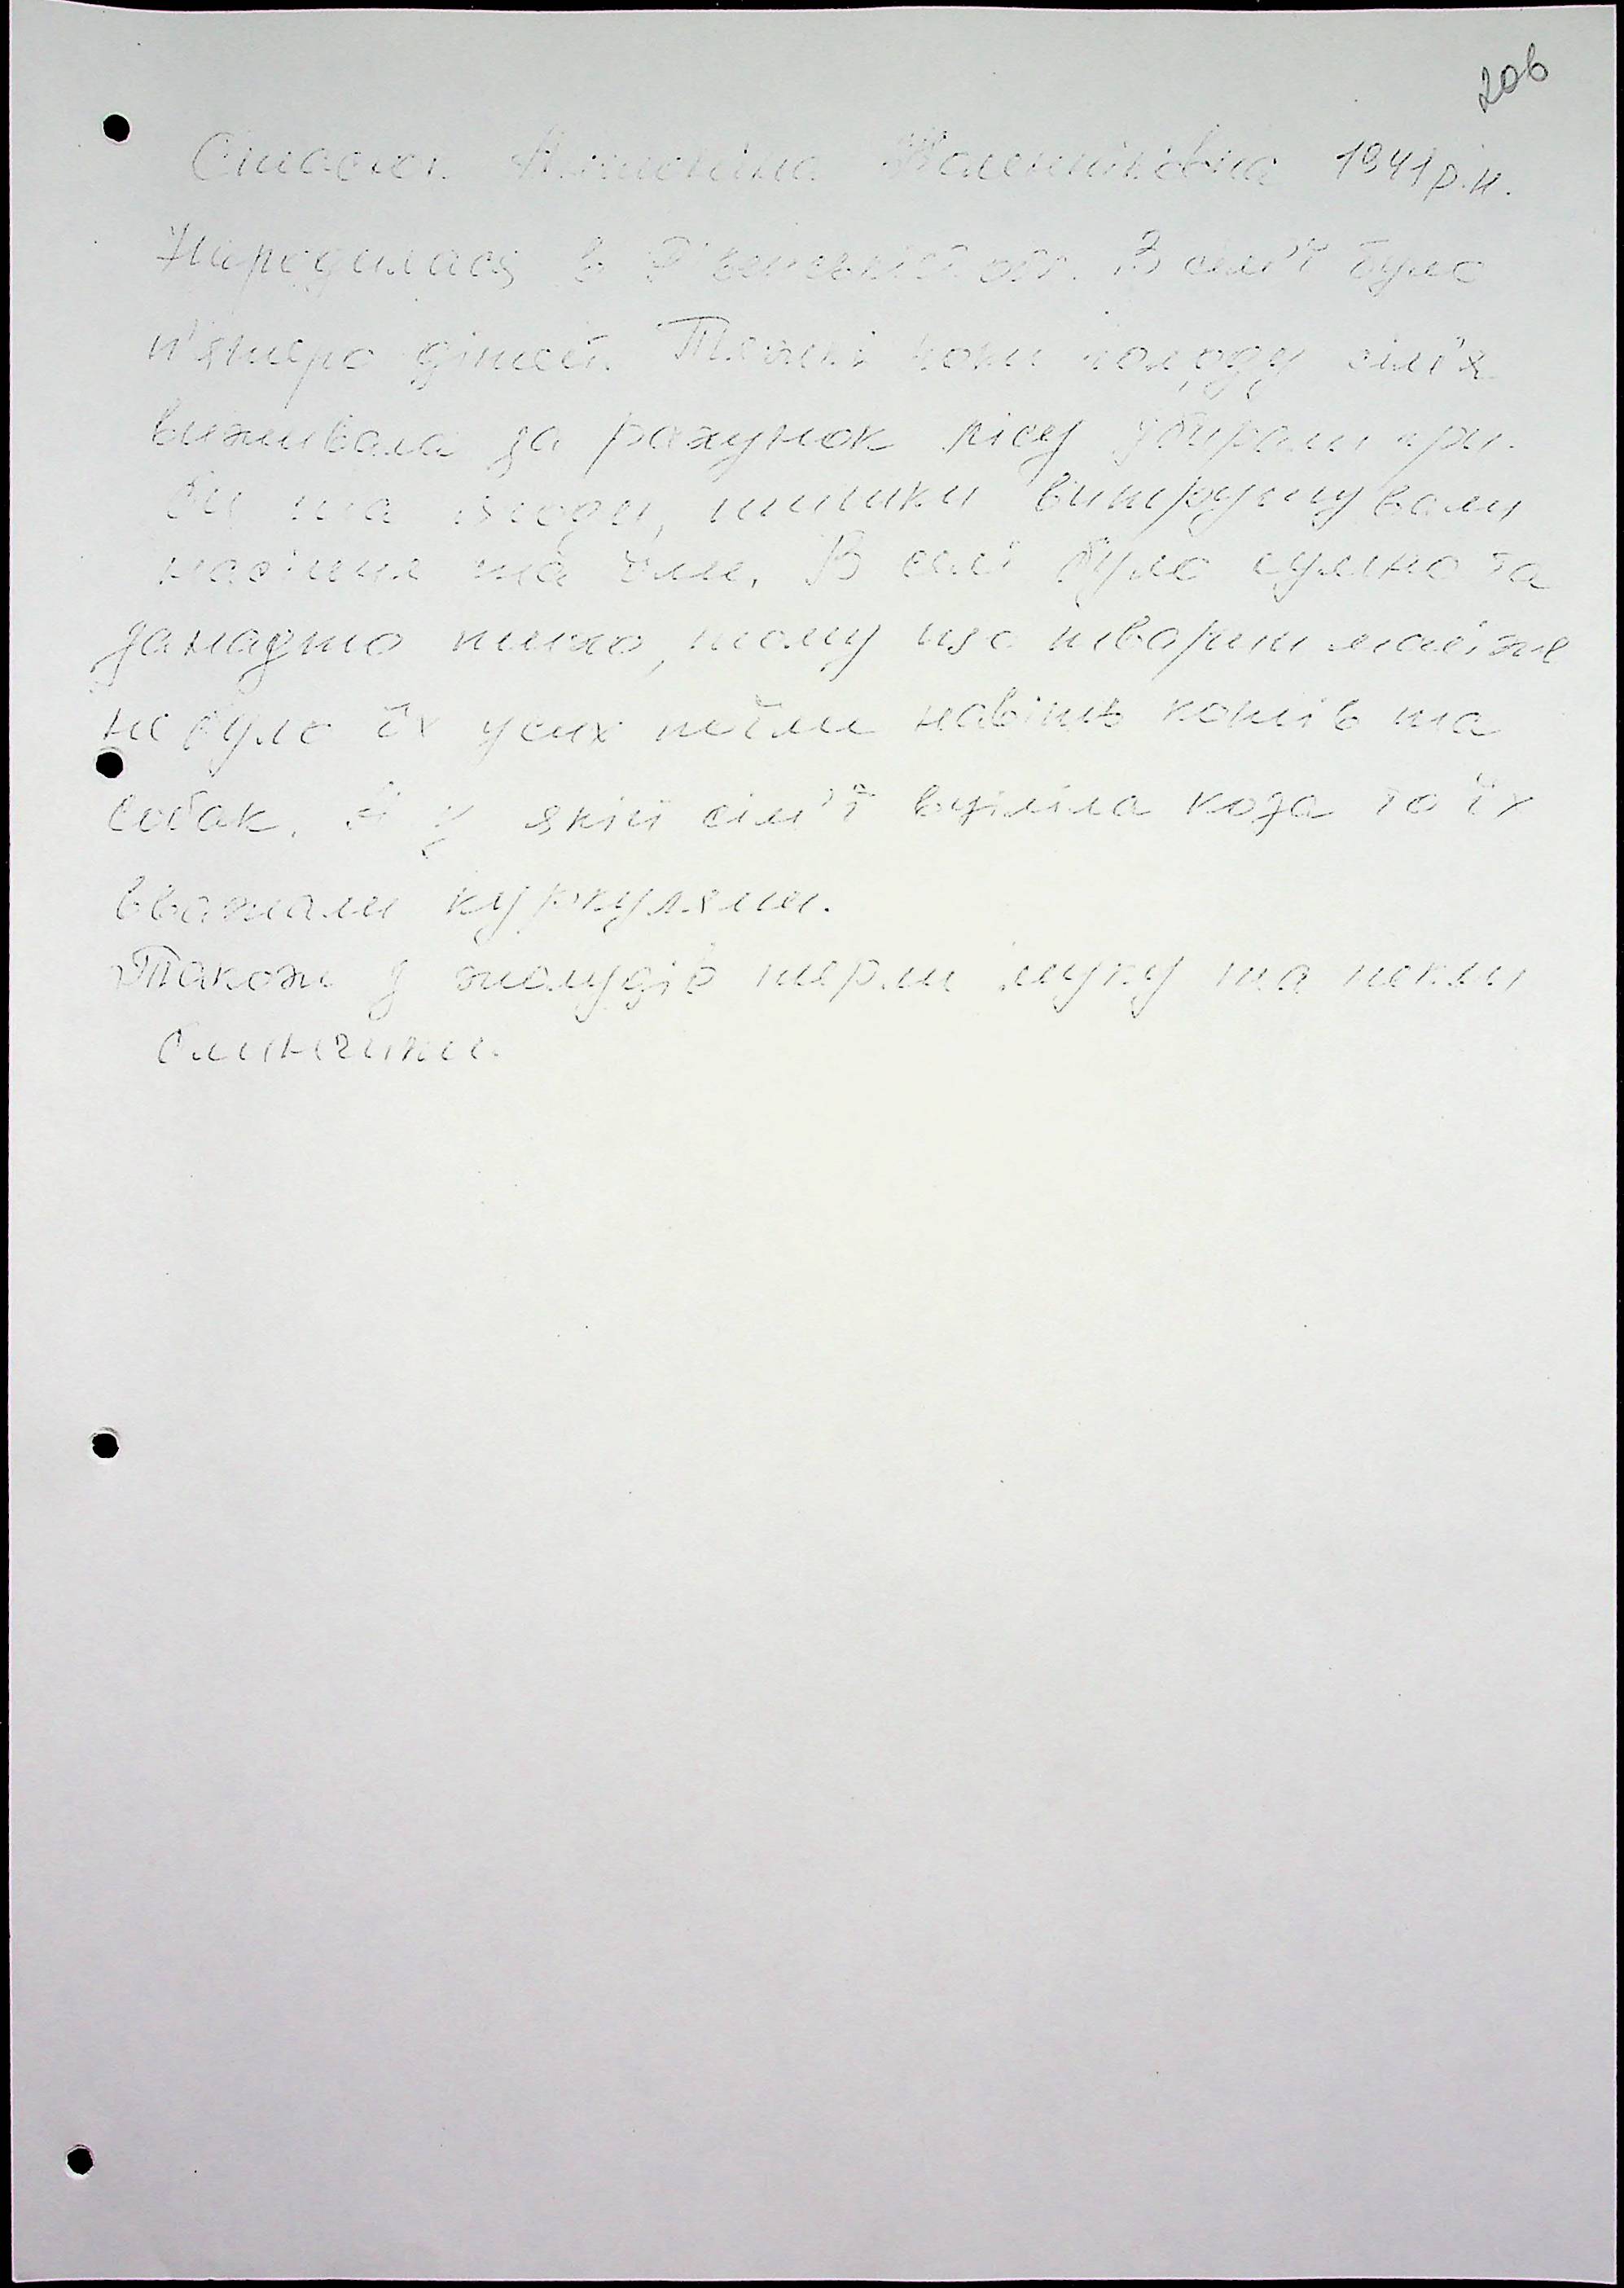 206
1941 р.н.
Народилась в Рівенській обл. В сім'ї було
п'ятеро дітей. Тяжкі роки голоду сім'я
виживала за рахунок лісу збирали гри-
би та ягоди, шишки витрушували
насіння та їли. В селі було сумно та
занадто тихо, тому що тварин майже
не було їх усих поїли навіть котів та
собак. А у якій сім'ї вціліла коза то їх
вважали куркулями.
Також з жолудів терли муку та пекли
блинчики.